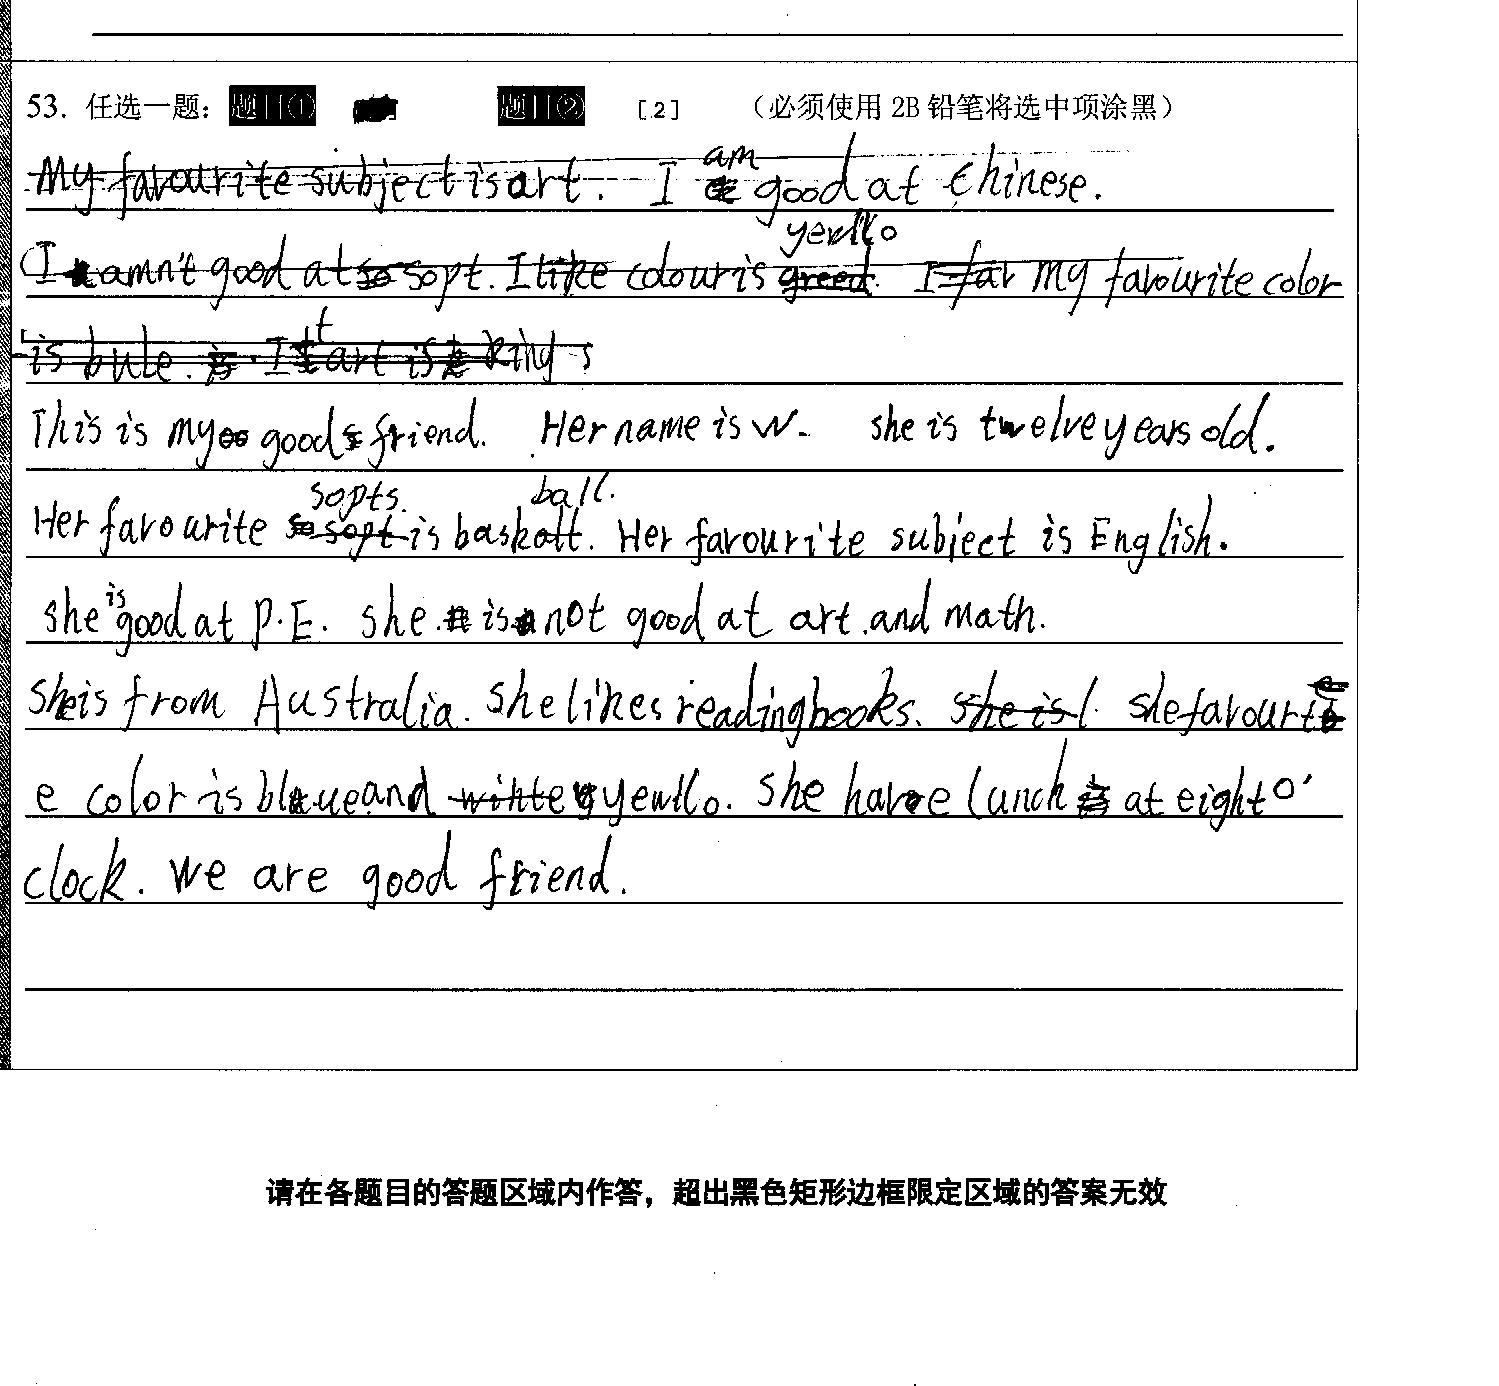 53. 任选一题： 题目① 题目② [2] （必须使用 2B 铅笔将选中项涂黑）
My favourite subject is art. I am good at Chinese.
I amn't good at so sopt. I like colour is greed yewllo I far my favourite color
is bule. is. I art is king s
This is my good friend. Her name is W. she is twelve years old.
Her favourite sopt sopts. is baskatt ball. Her favourite subject is English.
she is good at P.E. she is not good at art and math.
She is from Australia. She likes reading books. she is l she favourit
e color is blue and wihte yewllo. She have lunch at eight o'
clock. We are good friend.
请在各题目的答题区域内作答，超出黑色矩形边框限定区域的答案无效